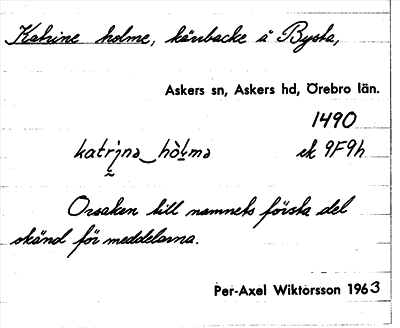 Katrine holme, kärrbacke å Bysta,
Askers sn, Askers hd, Örebro län.
1490
katri̯nə‿hòl̯mə ek 9F9h
Orsaken till namnets första del
okänd för meddelarna.
Per-Axel Wiktorsson 1963